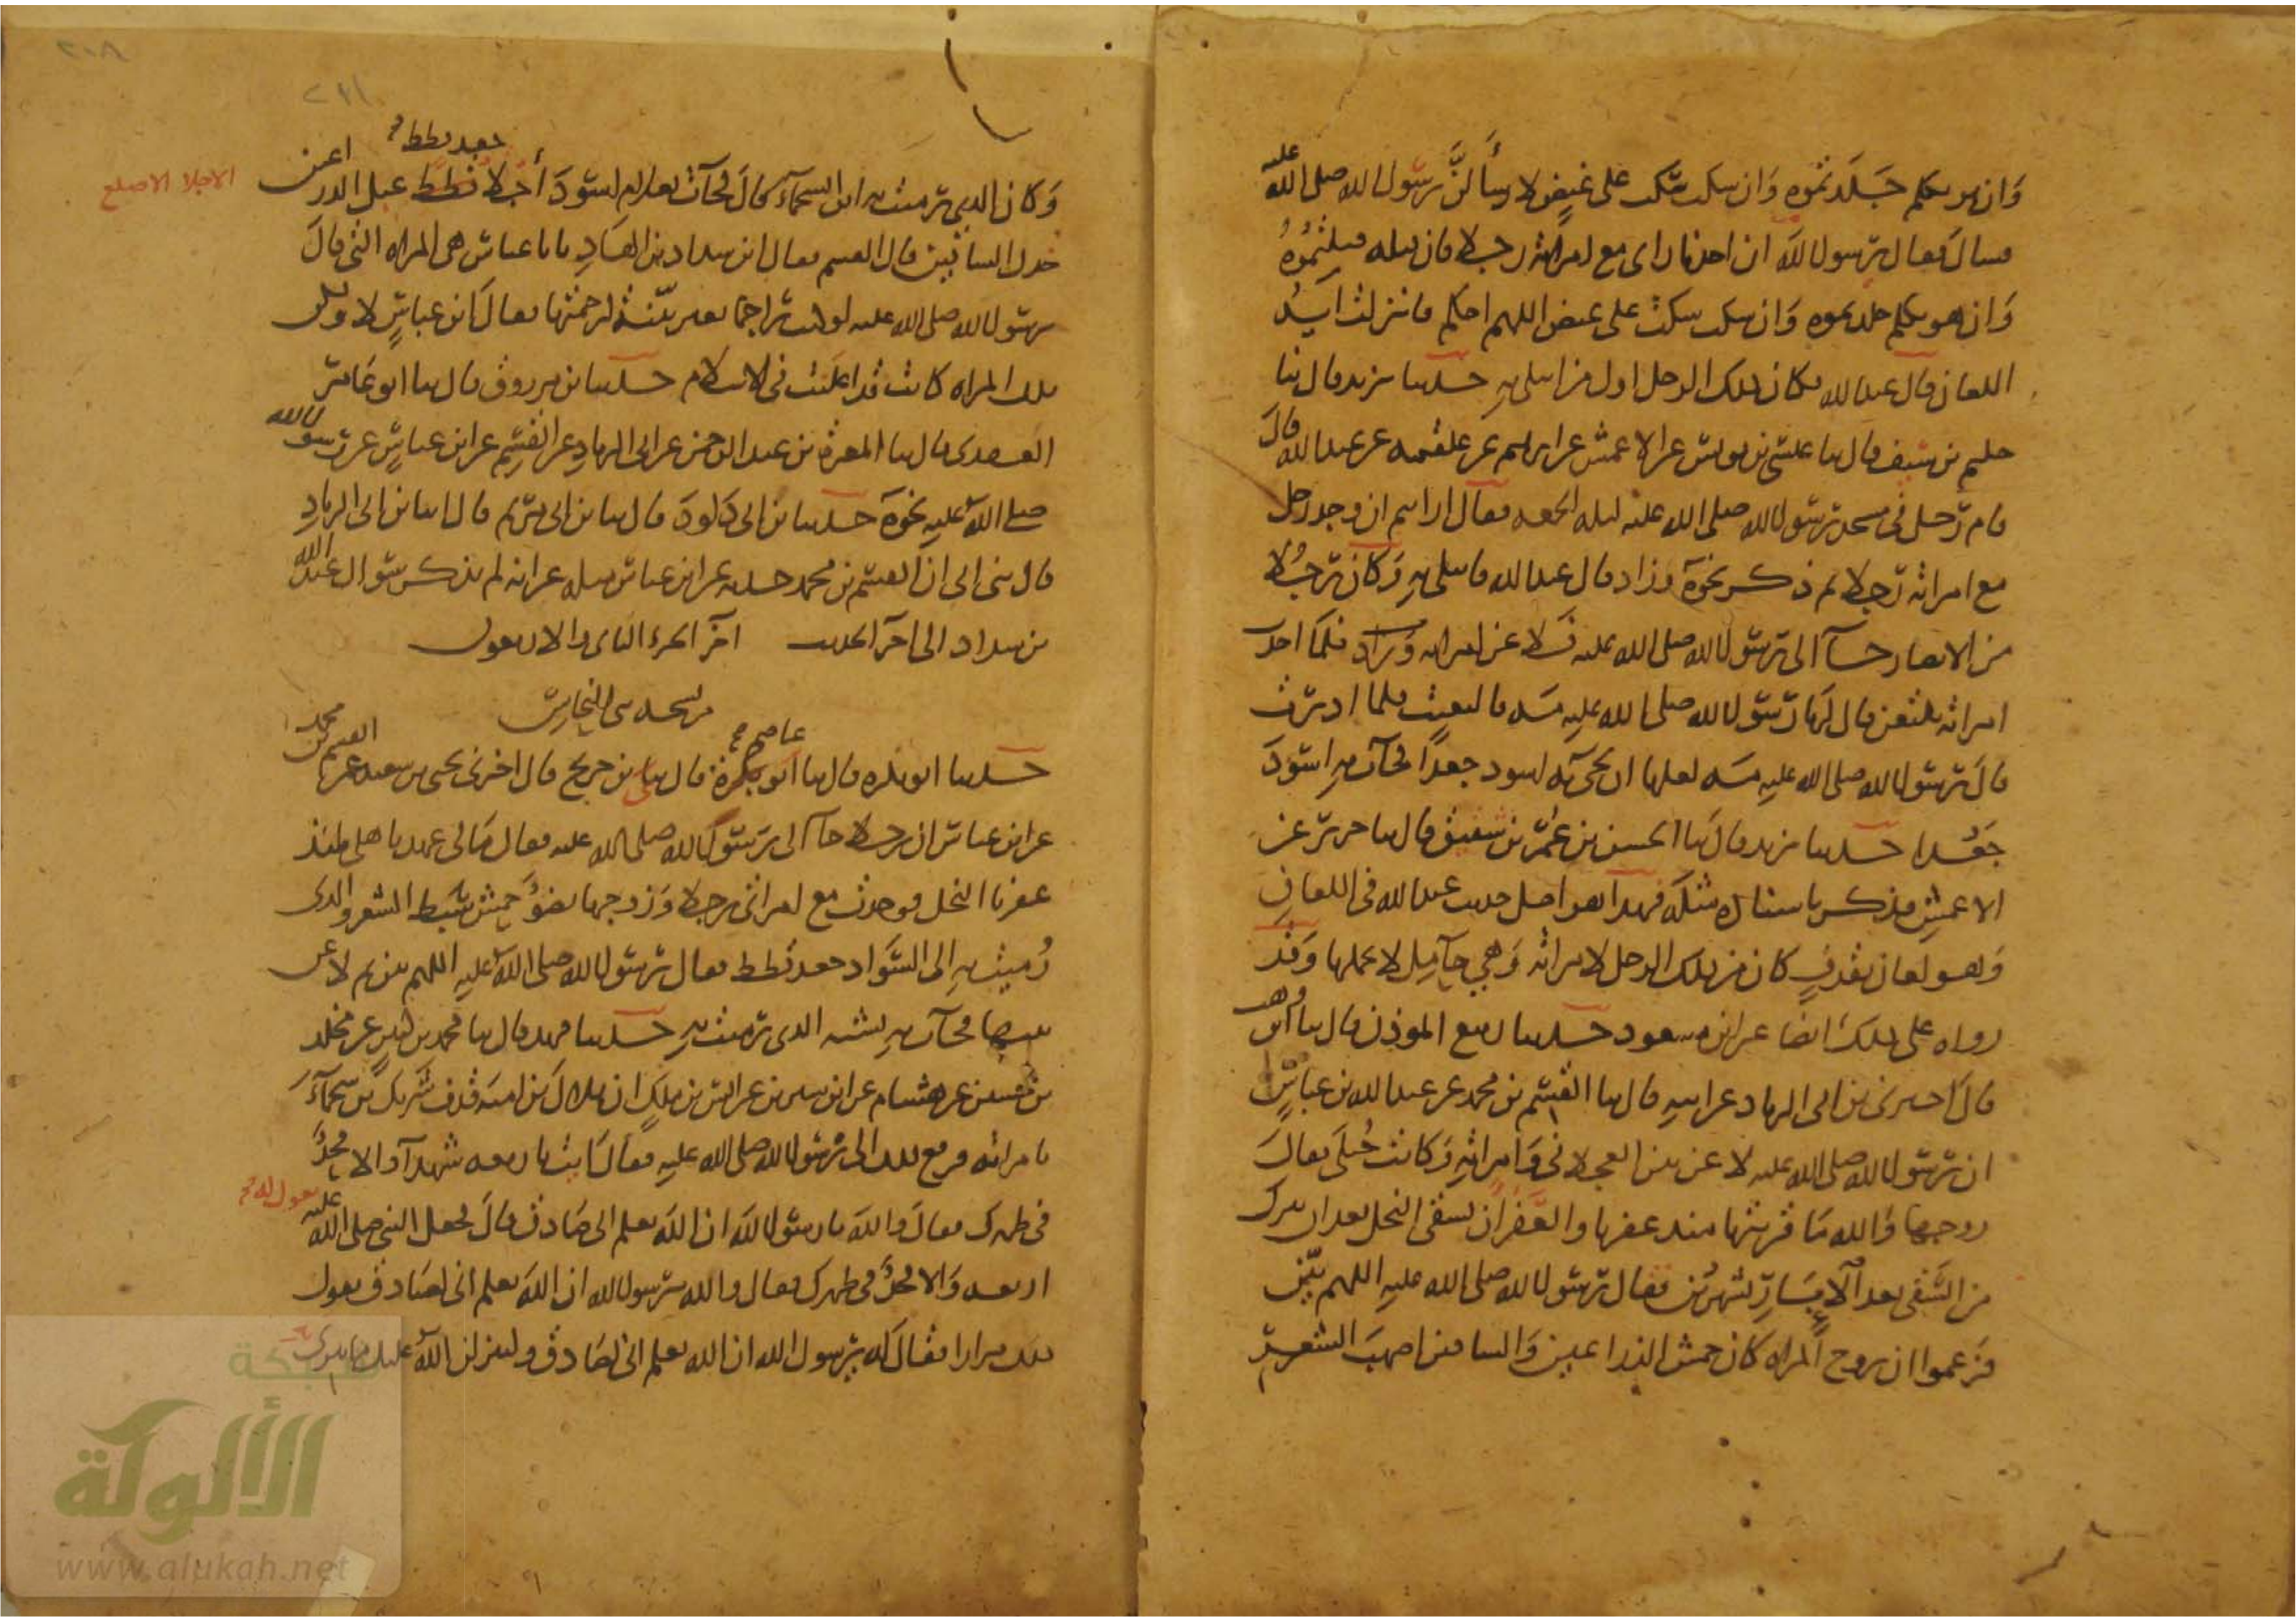 وان هو تكلم جلدتموه وان سكت سكت على غيض لاسألن رسول الله صلى الله عليه
فسال فقال يرسول الله ان احدنا راى مع امراته رجلا فان قتله قتلتموه
وان هو تكلم جلدتموه وان سكت سكت على غيض اللهم احكم فانزلت آية
اللعان قال عبد الله فكان ذلك الرجل اول من ابتلي به حدثنا يزيد قال ثنا
حكيم بن سيف قال ثنا عيسى بن يونس عن الاعمش عن ابرهيم عن علقمه عن عبد الله قال
قام رجل في مسجد رسول الله صلى الله عليه ليله الجمعه فقال ارايتم ان وجد رجل
مع امراته رجلا ثم ذكر نحوه وزاد قال عبد الله فابتلي به وكان رجلا
من الانصار جآ الى رسول الله صلى الله عليه فلاعن امراته وزاد فلما اخذت
امراته تلتعن قال لها رسول الله صلى الله عليه مه فالتعنت فلما ادبرت
قال رسول الله صلى الله عليه مه لعلها ان تجي به اسود جعدا فجآت به اسود
جعدا حدثنا يزيد قال ثنا الحسن بن عمر بن شقيق قال ثنا جرير عن
الاعمش فذكر باسناده مثله فهذا هو اصل حديث عبد الله في اللعان
وهو لعان بقذف كان من ذلك الرجل لامراته وهي حامل لا بحملها وقد
رواه على ذلك ايضا عن ابن مسعود حدثنا ربيع الموذن قال ثنا ابن وهب
قال اخبرني بن ابي الزناد عن ابيه قال ثنا القسم بن محمد عن عبد الله بن عباس
ان رسول الله صلى الله عليه لاعن بين العجلاني وامراته وكانت حبلى فقال
زوجها والله ما قربتها منذ عفرنا والعفر ان يسقى النخل بعد ان يترك
من السقي بعد الابار بشهرين فقال رسول الله صلى الله عليه اللهم بين
فزعموا ان زوج المراه كان حمش الذراعين والساقين اصهب الشعره
وكان الذي رميت به ابن السحمآء قال فجآت بغلام اسود أجلا قطط عبل الذراعين
جعد قطط
الاجلا الاصلع
خدل الساقين قال القسم فقال ابن شداد بن الهاد يابا عباس هي المراه التي قال
رسول الله صلى الله عليه لو كنت راجما بغير بينة لرجمتها فقال ابن عباس لا ولكن
تلك المراه كانت قد اعلنت في الاسلام حدثنا بن مرزوق قال ثنا ابو عامر
العقدي قال ثنا المغيرة بن عبد الرحمن عن ابي الزناد عن القسم عن ابن عباس عن رسول الله
صلى الله عليه نحوه حدثنا بن ابي داود قال ثنا بن ابي مريم قال انا بن ابي الزناد
قال ثنى ابي ان القسم بن محمد حدثه عن ابن عباس مثله غير انه لم يذكر سوال عبد الله
بن شداد الى اخر الحديث اخر الجزء الثاني والاربعون
حدثنا ابو بكره قال ثنا ابو عاصم قال ثنا بن جريج قال اخبرني يحيى بن سعيد عن القسم بن محمد
عن ابن عباس ان رجلا جآ الى رسول الله صلى الله عليه فقال مالي عهد باهلي منذ
عفرنا النخل فوجدت مع امراتي رجلا وزوجها نضو حمش سبط الشعر والذي
رميت به الى السواد جعد قطط فقال رسول الله صلى الله عليه اللهم بين ثم لاعن
بينهما فجآت به يشبه الذي رميت به حدثنا فهد قال ثنا محمد بن كثير عن مخلد
بن حسين عن هشام عن ابن سيرين عن انس بن ملك ان هلال بن اميه قذف شريك بن سحمآء
بامراته فرفع ذلك الى رسول الله صلى الله عليه فقال ايت باربعه شهدآ والا فحد
في ظهرك فقال والله يا رسول الله ان الله يعلم اني صادق قال فجعل النبي صلى الله عليه يقول له
اربعه والا فحد في ظهرك فقال والله يرسول الله ان الله يعلم اني لصادق يقول
ذلك مرارا فقال له يرسول الله ان الله يعلم اني لصادق ولينزلن الله عليك ما يبرئ
شبكة
الألوكة
www.alukah.net